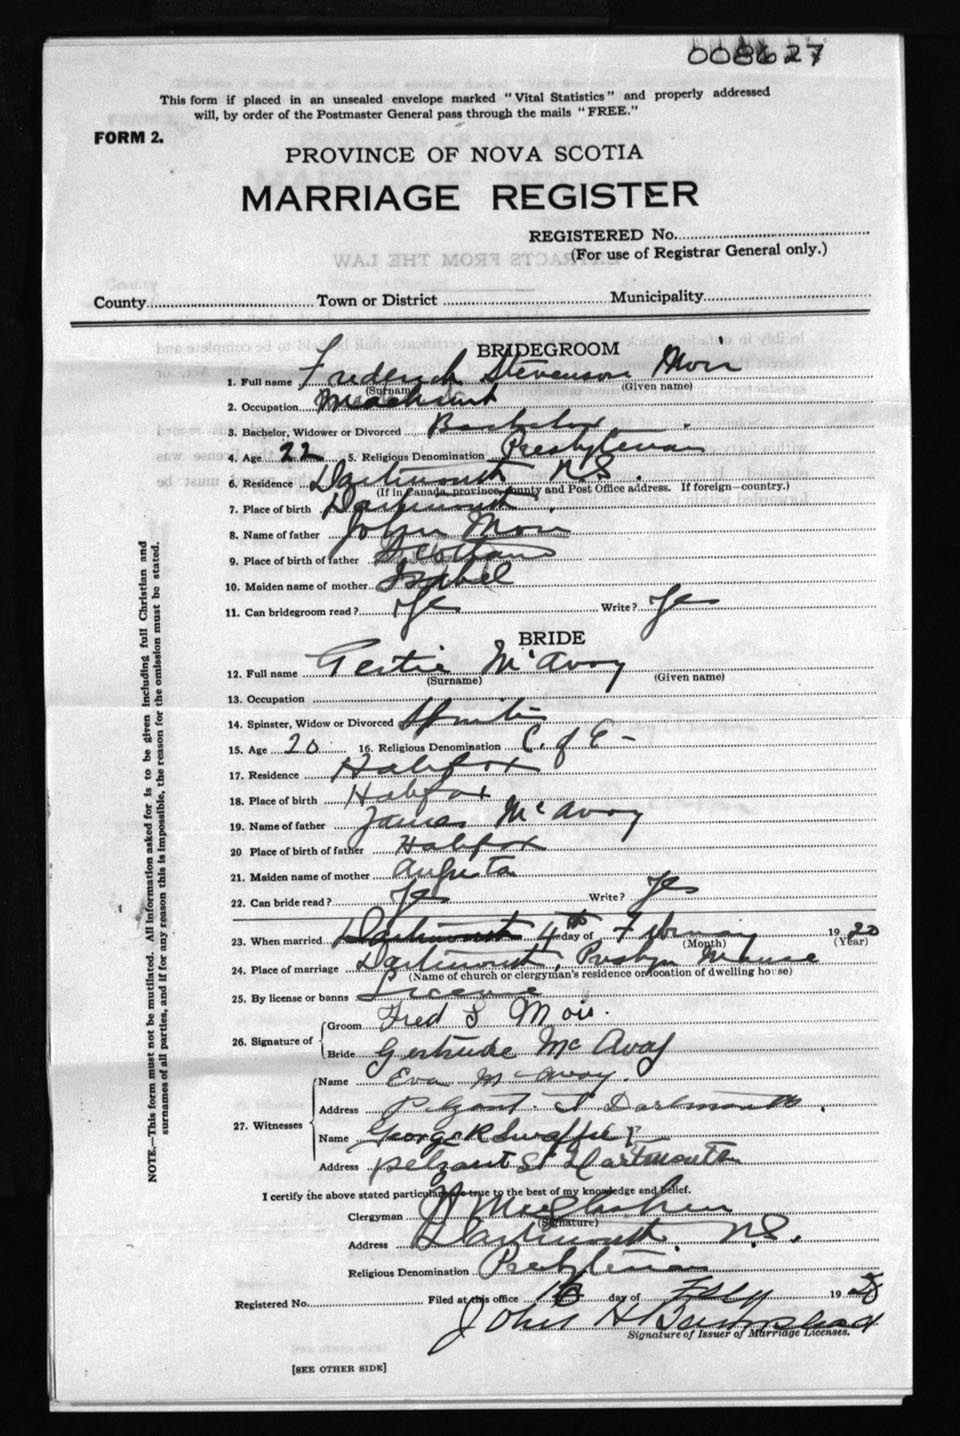 008627
This form if placed in an unsealed envelope marked "Vital Statistics" and properly addressed
will, by order of the Postmaster General pass through the mails "FREE."
FORM 2.
PROVINCE OF NOVA SCOTIA
MARRIAGE REGISTER
REGISTERED No.
(For use of Registrar General only.)
EXTRACTS FROM THE LAW
County Town or District Municipality
BRIDEGROOM
1. Full name Frederick Stevenson Moir
(Surname) (Given name)
2. Occupation Machinist
3. Bachelor, Widower or Divorced Bachelor
4. Age 22 5. Religious Denomination Presbyterian
6. Residence Dartmouth N.S.
(If in Canada, province, county and Post Office address. If foreign—country.)
7. Place of birth Dartmouth
8. Name of father John Moir
9. Place of birth of father Scotland
10. Maiden name of mother Isabel
11. Can bridegroom read? Yes Write? Yes
BRIDE
12. Full name Gertie McAvoy
(Surname) (Given name)
13. Occupation
14. Spinster, Widow or Divorced Spinster
15. Age 20 16. Religious Denomination C. of E -
17. Residence Halifax
18. Place of birth Halifax
19. Name of father James McAvoy
20 Place of birth of father Halifax
21. Maiden name of mother Augusta
22. Can bride read? Yes Write? Yes
23. When married Dartmouth 4th day of February 1920
(Month) (Year)
24. Place of marriage Dartmouth, Presbyn Manse
(Name of church or clergyman's residence or location of dwelling house)
25. By license or banns License
26. Signature of Groom Fred S Moir.
Bride Gertrude McAvoy
27. Witnesses Name Eva McAvoy.
Address Pelzant St Dartmouth.
Name George R
Address Pelzant St Dartmouth
I certify the above stated particulars are true to the best of my knowledge and belief.
Clergyman
(Signature)
Address Dartmouth N.S.
Religious Denomination Presbyterian
Registered No. Filed at this office 16 day of Feby 19
John H
Signature of Issuer of Marriage Licenses.
[SEE OTHER SIDE]
NOTE.—This form must not be mutilated. All information asked for is to be given including full Christian and
surnames of all parties, and if for any reason this is impossible, the reason for the omission must be stated.